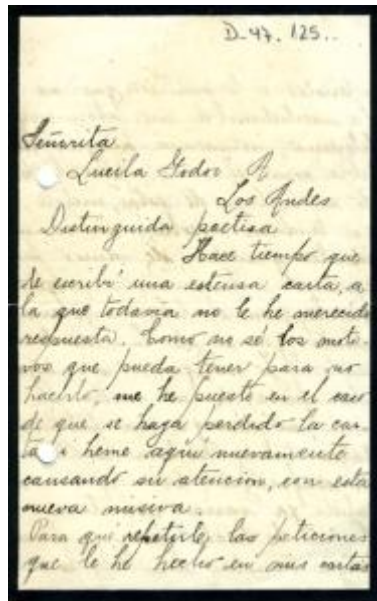 D-47. 125..
Señorita
Lucila Godoy A
Los Andes
Distinguida poetisa
Hace tiempo que
le escribí una estensa carta, a
la que todavía no le he merecido
respuesta. Como no sé los moti-
vos que pueda tener para no
hacerlo, me he puesto en el caso
de que se haya perdido la car-
ta i heme aquí nuevamente
causando su atencion, con esta
nueva misiva
Para qué repetirle las peticiones
que le he hecho en mis cartas